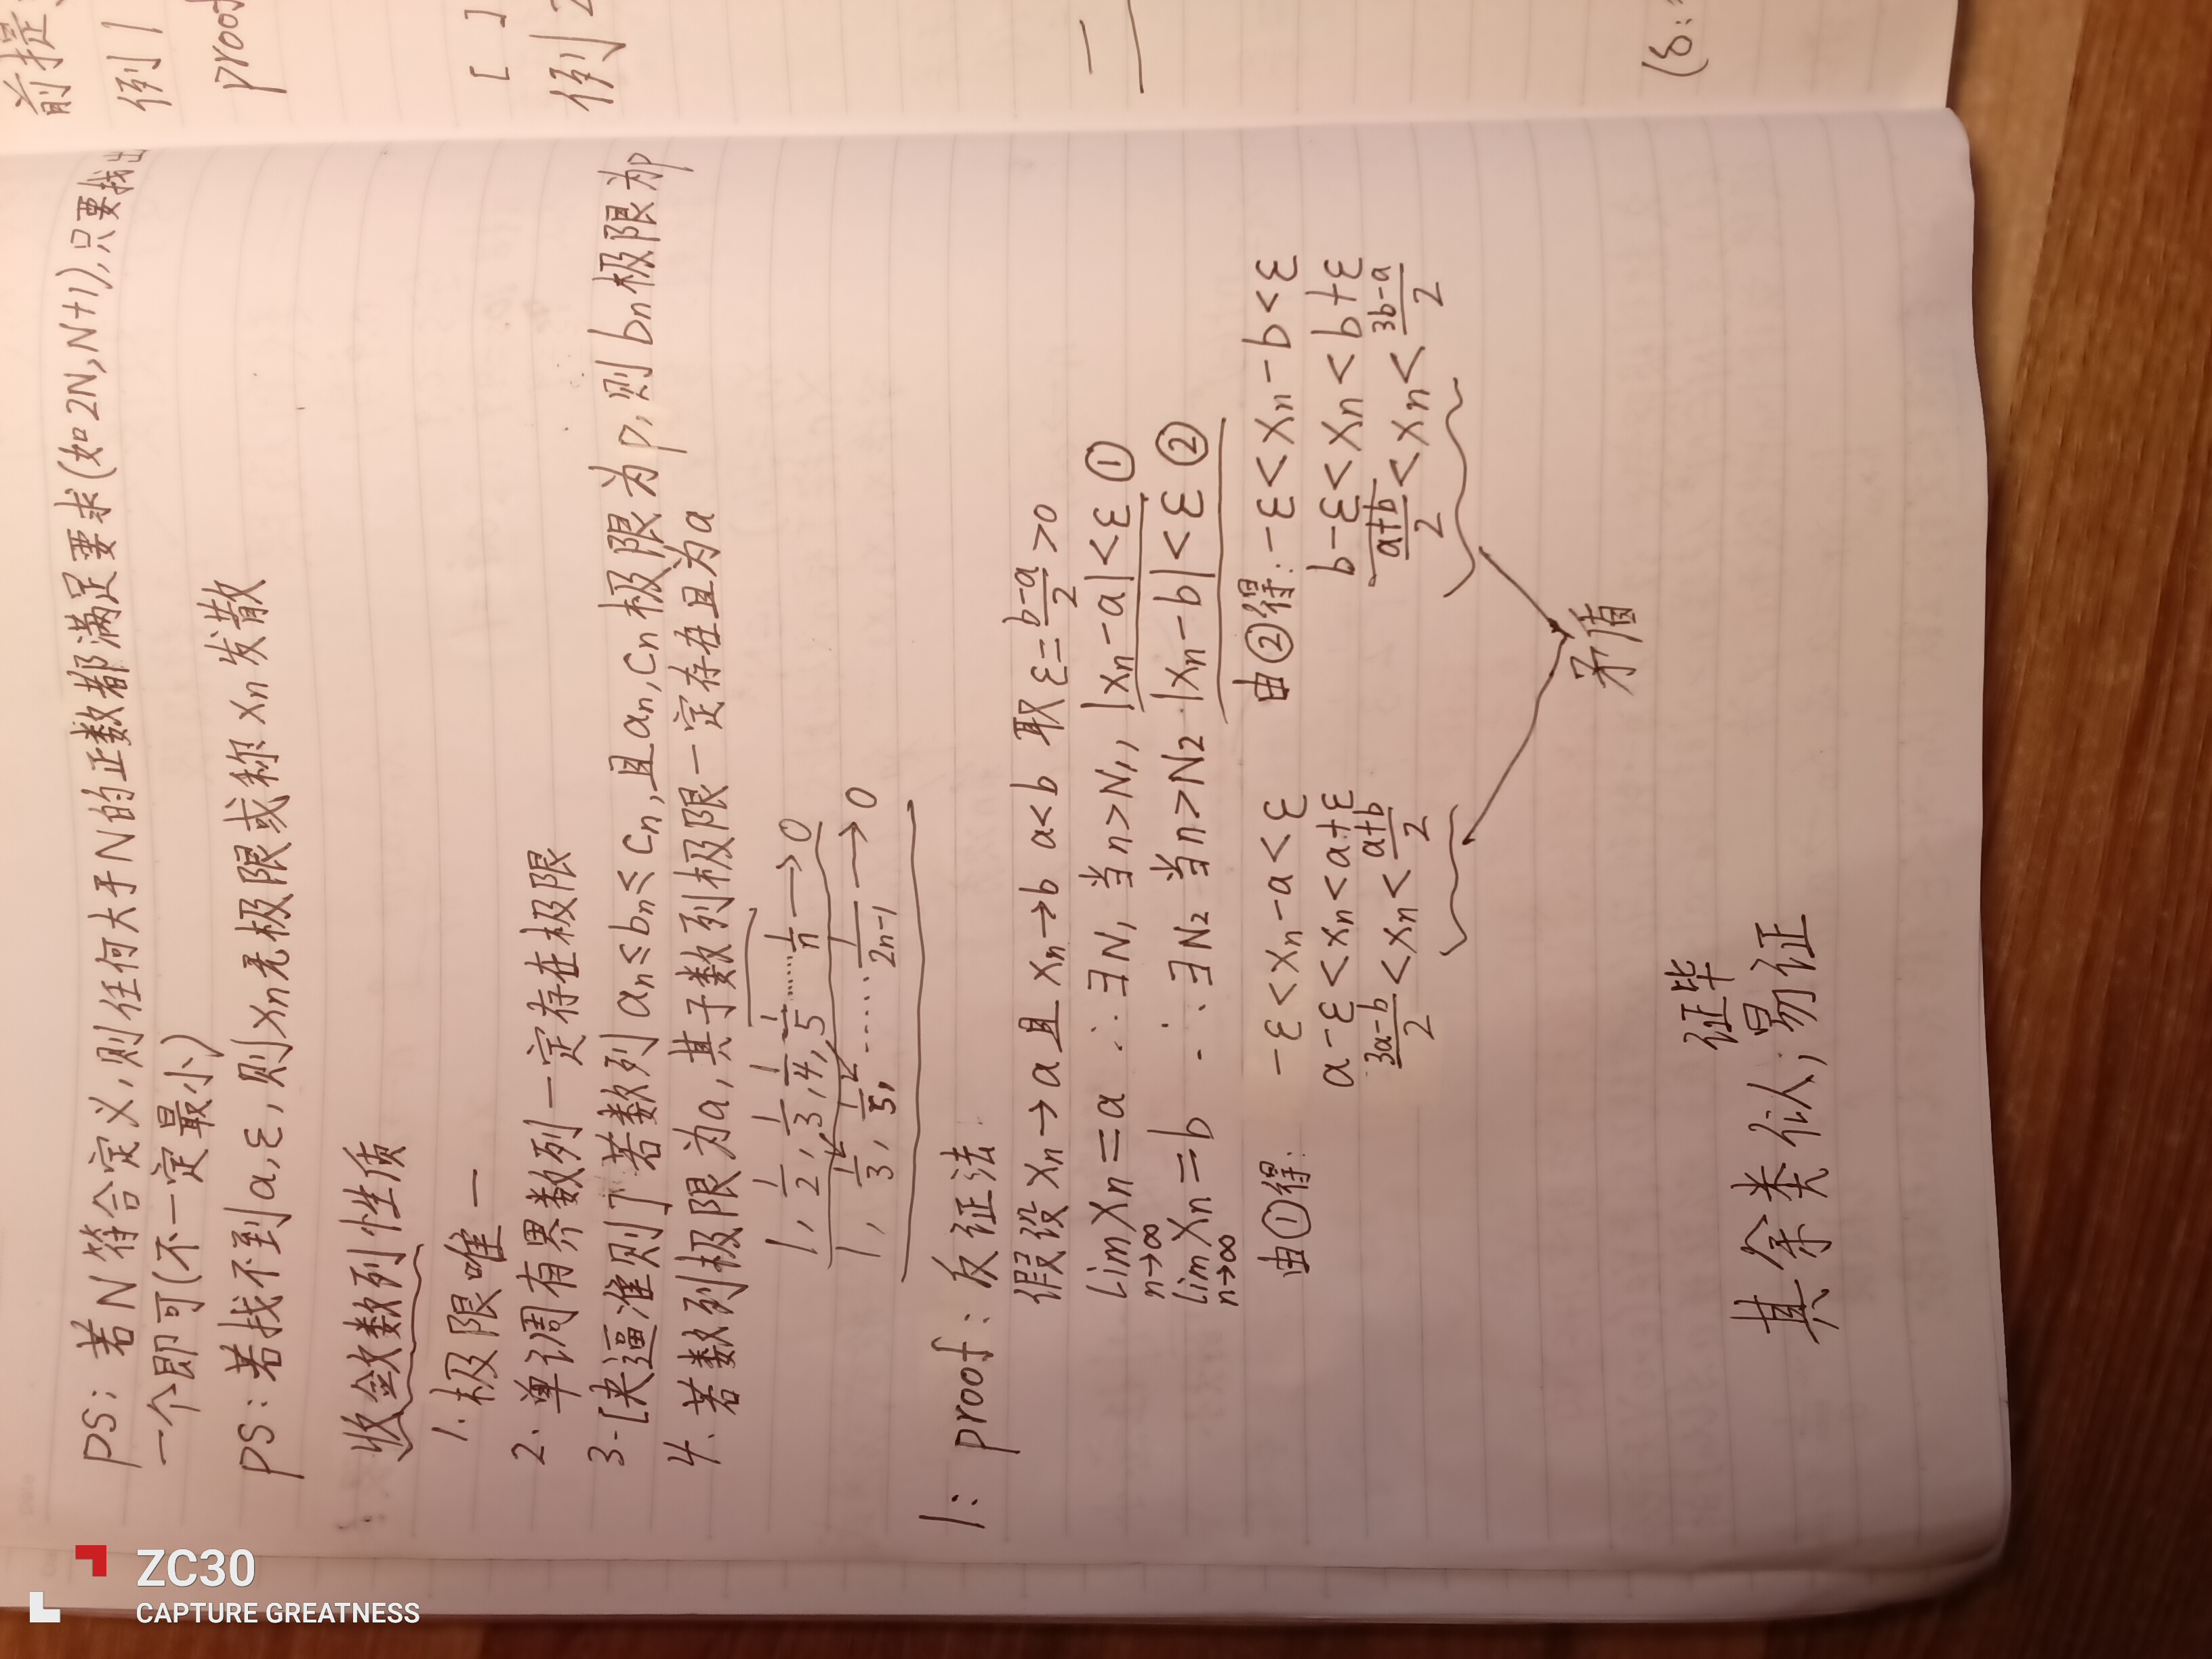 前提
例1
proof
[ ]
例2
(8:
PS: 若N符合定义,则任何大于N的正数都满足要求(如2N,N+1),只要找出
一个即可(不一定最小)
PS:若找不到a,ε,则xn无极限或称xn发散
收敛数列性质
1.极限唯一
2.单调有界数列一定存在极限
3.[夹逼准则]若数列an≤bn≤cn,且an,cn极限为p,则bn极限为p
4.若数列极限为a,其子数列极限一定存在且为a
1, 1/2, 1/3, 1/4, 1/5 …… 1/n → 0
1, 1/3, 1/5, …… 1/(2n-1) → 0
1: proof: 反证法
假设xn→a且xn→b a<b 取ε=(b-a)/2>0
lim n→∞ xn=a ∴∃N1当n>N1, |xn-a|<ε ①
lim n→∞ xn=b ∴∃N2当n>N2 |xn-b|<ε ②
由①得: -ε<xn-a<ε 由②得: -ε<xn-b<ε
a-ε<xn<a+ε b-ε<xn<b+ε
(3a-b)/2<xn<(a+b)/2 (a+b)/2<xn<(3b-a)/2
矛盾
证毕
其余类似,易证
ZC30
CAPTURE GREATNESS